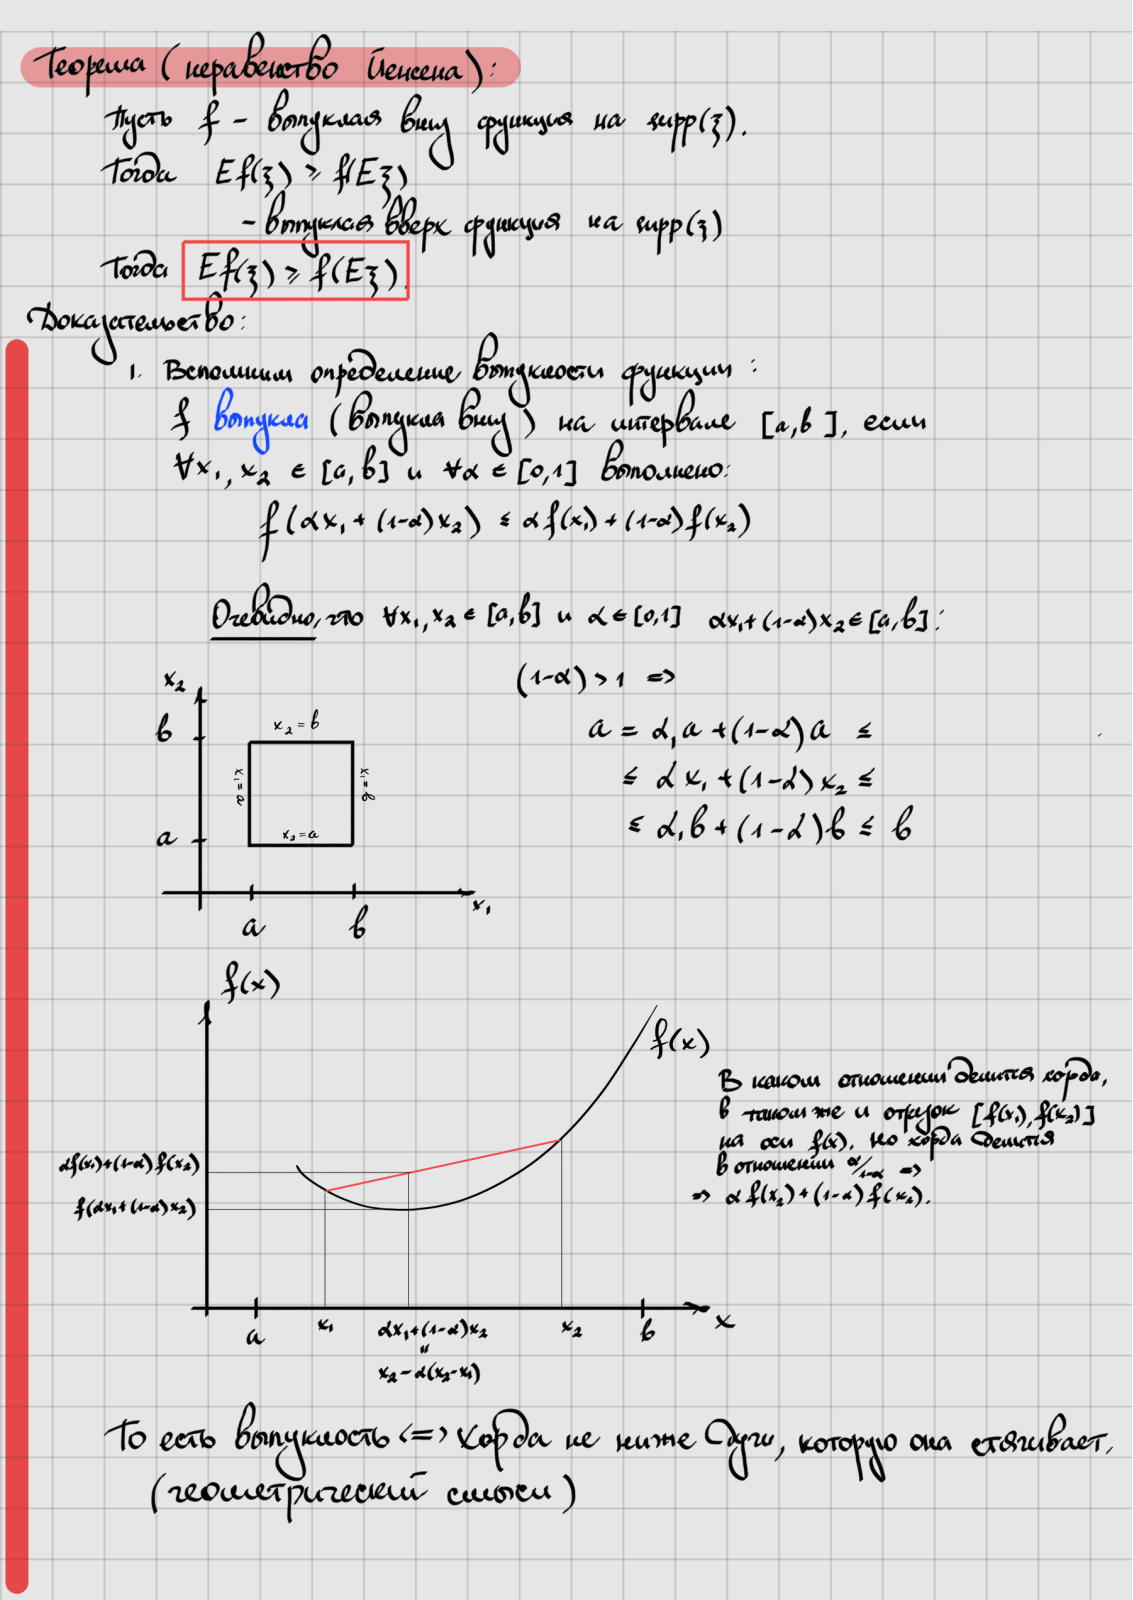 Теорема (неравенство Йенсена):
Пусть f - выпуклая вниз функция на supp(ξ).
Тогда Ef(ξ) ≥ f(Eξ)
- выпуклая вверх функция на supp(ξ)
Тогда Ef(ξ) ≥ f(Eξ).
Доказательство:
1. Вспомним определение выпуклости функции:
f выпукла (выпукла вниз) на интервале [a,b], если
∀x₁, x₂ ∈ [a,b] и ∀α ∈ [0,1] выполнено:
f(αx₁ + (1-α)x₂) ≤ αf(x₁) + (1-α)f(x₂)
Очевидно, что ∀x₁, x₂ ∈ [a,b] и α ∈ [0,1] αx₁+(1-α)x₂ ∈ [a,b]:
(1-α) > 1 =>
a = α₁a + (1-α)a ≤
≤ αx₁ + (1-α)x₂ ≤
≤ α₁b + (1-α)b ≤ b
x₂
b
x₂ = b
x₁ = a
x₁ = b
x₂ = a
a
a
b
x₁
f(x)
f(x)
В каком отношении делится хорда,
в таком же и отрезок [f(x₁), f(x₂)]
на оси f(x). Но хорда делится
в отношении α/1-α =>
=> αf(x₂) + (1-α)f(x₂).
αf(x₁)+(1-α)f(x₂)
f(αx₁+(1-α)x₂)
a
x₁
αx₁+(1-α)x₂
x₂
b
x
"
x₂-α(x₂-x₁)
То есть выпуклость <=> Хорда не ниже дуги, которую она стягивает.
(геометрический смысл)